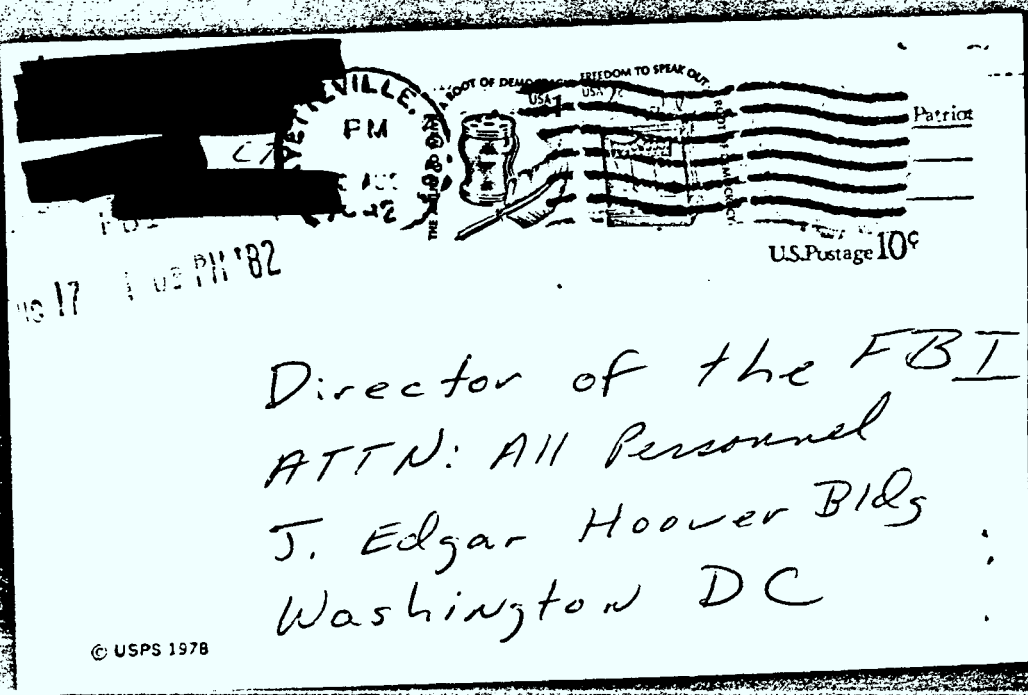 YETTEVILLE,
PM
AUG
A ROOT OF DEMOCRACY
FREEDOM TO SPEAK OUT
A ROOT OF DEMOCRACY
USA 1
USA 2c
Patriot
U.S. Postage 10¢
FBI
17 PM '82
Director of the FBI
ATTN: All Personnel
J. Edgar Hoover Bldg
Washington DC
© USPS 1978